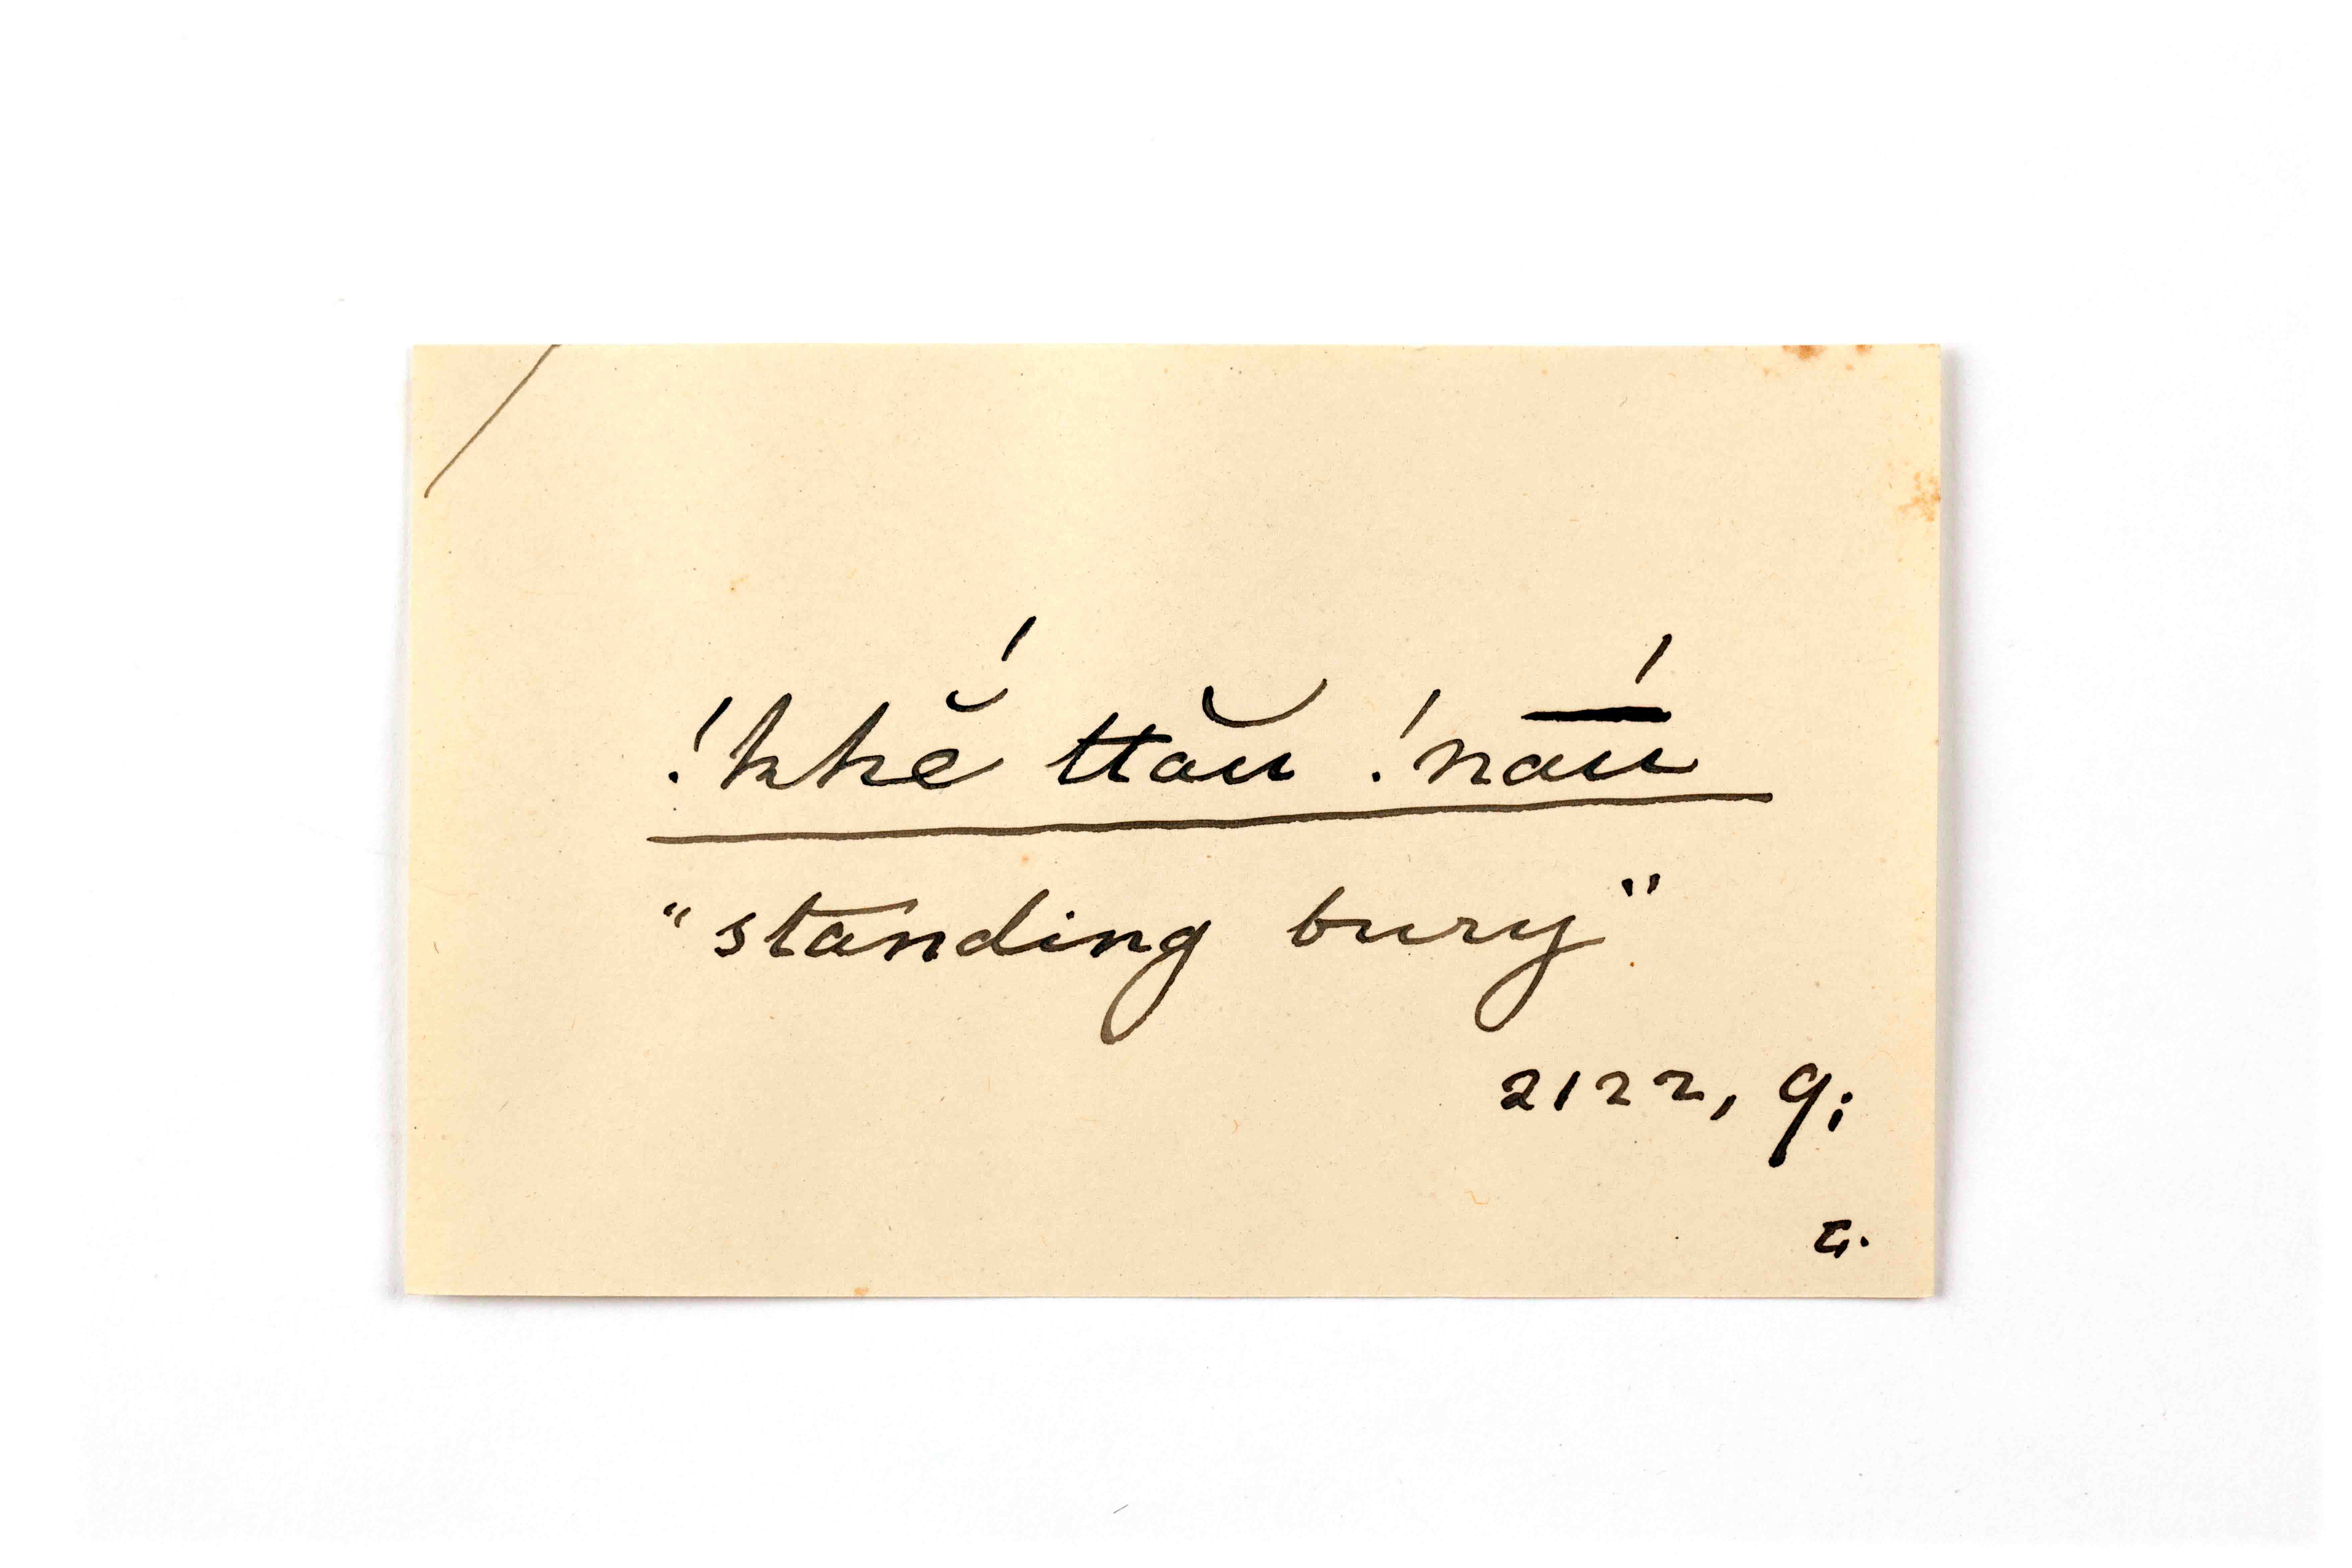 !khĕ́ ttău !nāú
"standing bury"
2122, 9;